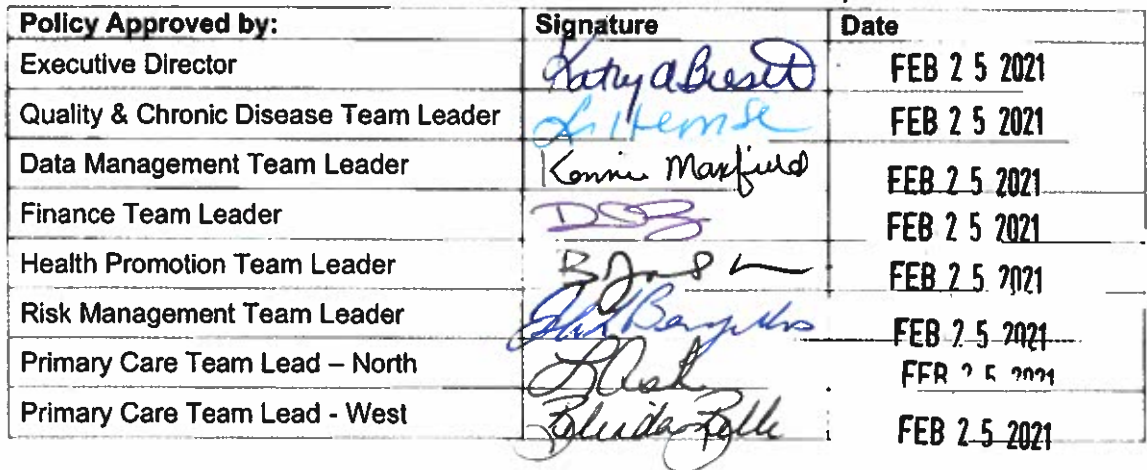 Policy Approved by: Signature Date
Executive Director FEB 25 2021
Quality & Chronic Disease Team Leader FEB 25 2021
Data Management Team Leader Konnie Maxfield FEB 25 2021
Finance Team Leader FEB 25 2021
Health Promotion Team Leader FEB 25 2021
Risk Management Team Leader FEB 25 2021
Primary Care Team Lead – North FEB 25 2021
Primary Care Team Lead - West FEB 25 2021